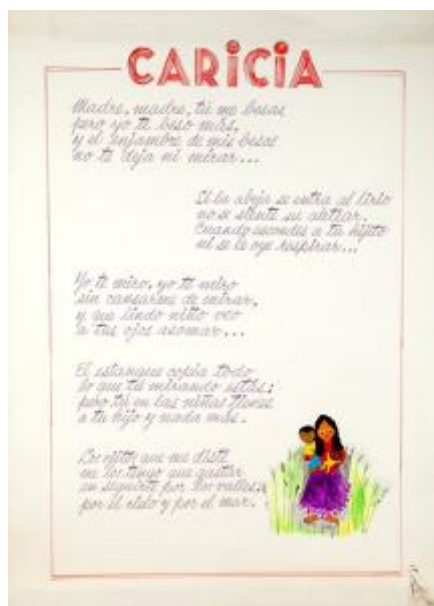 CARICIA
Madre, madre, tú me besas
pero yo te beso más,
y el enjambre de mis besos
no te deja ni mirar...
Si la abeja se entra al lirio
no se siente su aletear.
Cuando escondes a tu hijito
ni se le oye respirar...
Yo te miro, yo te miro
sin cansarme de mirar,
y que lindo niño veo
a tus ojos asomar...
El estanque copia todo
lo que tú mirando estás;
pero tú en las niñas tienes
a tu hijo y nada más.
Los ojitos que me diste
me los tengo que gastar
en seguirte por los valles,
por el cielo y por el mar.